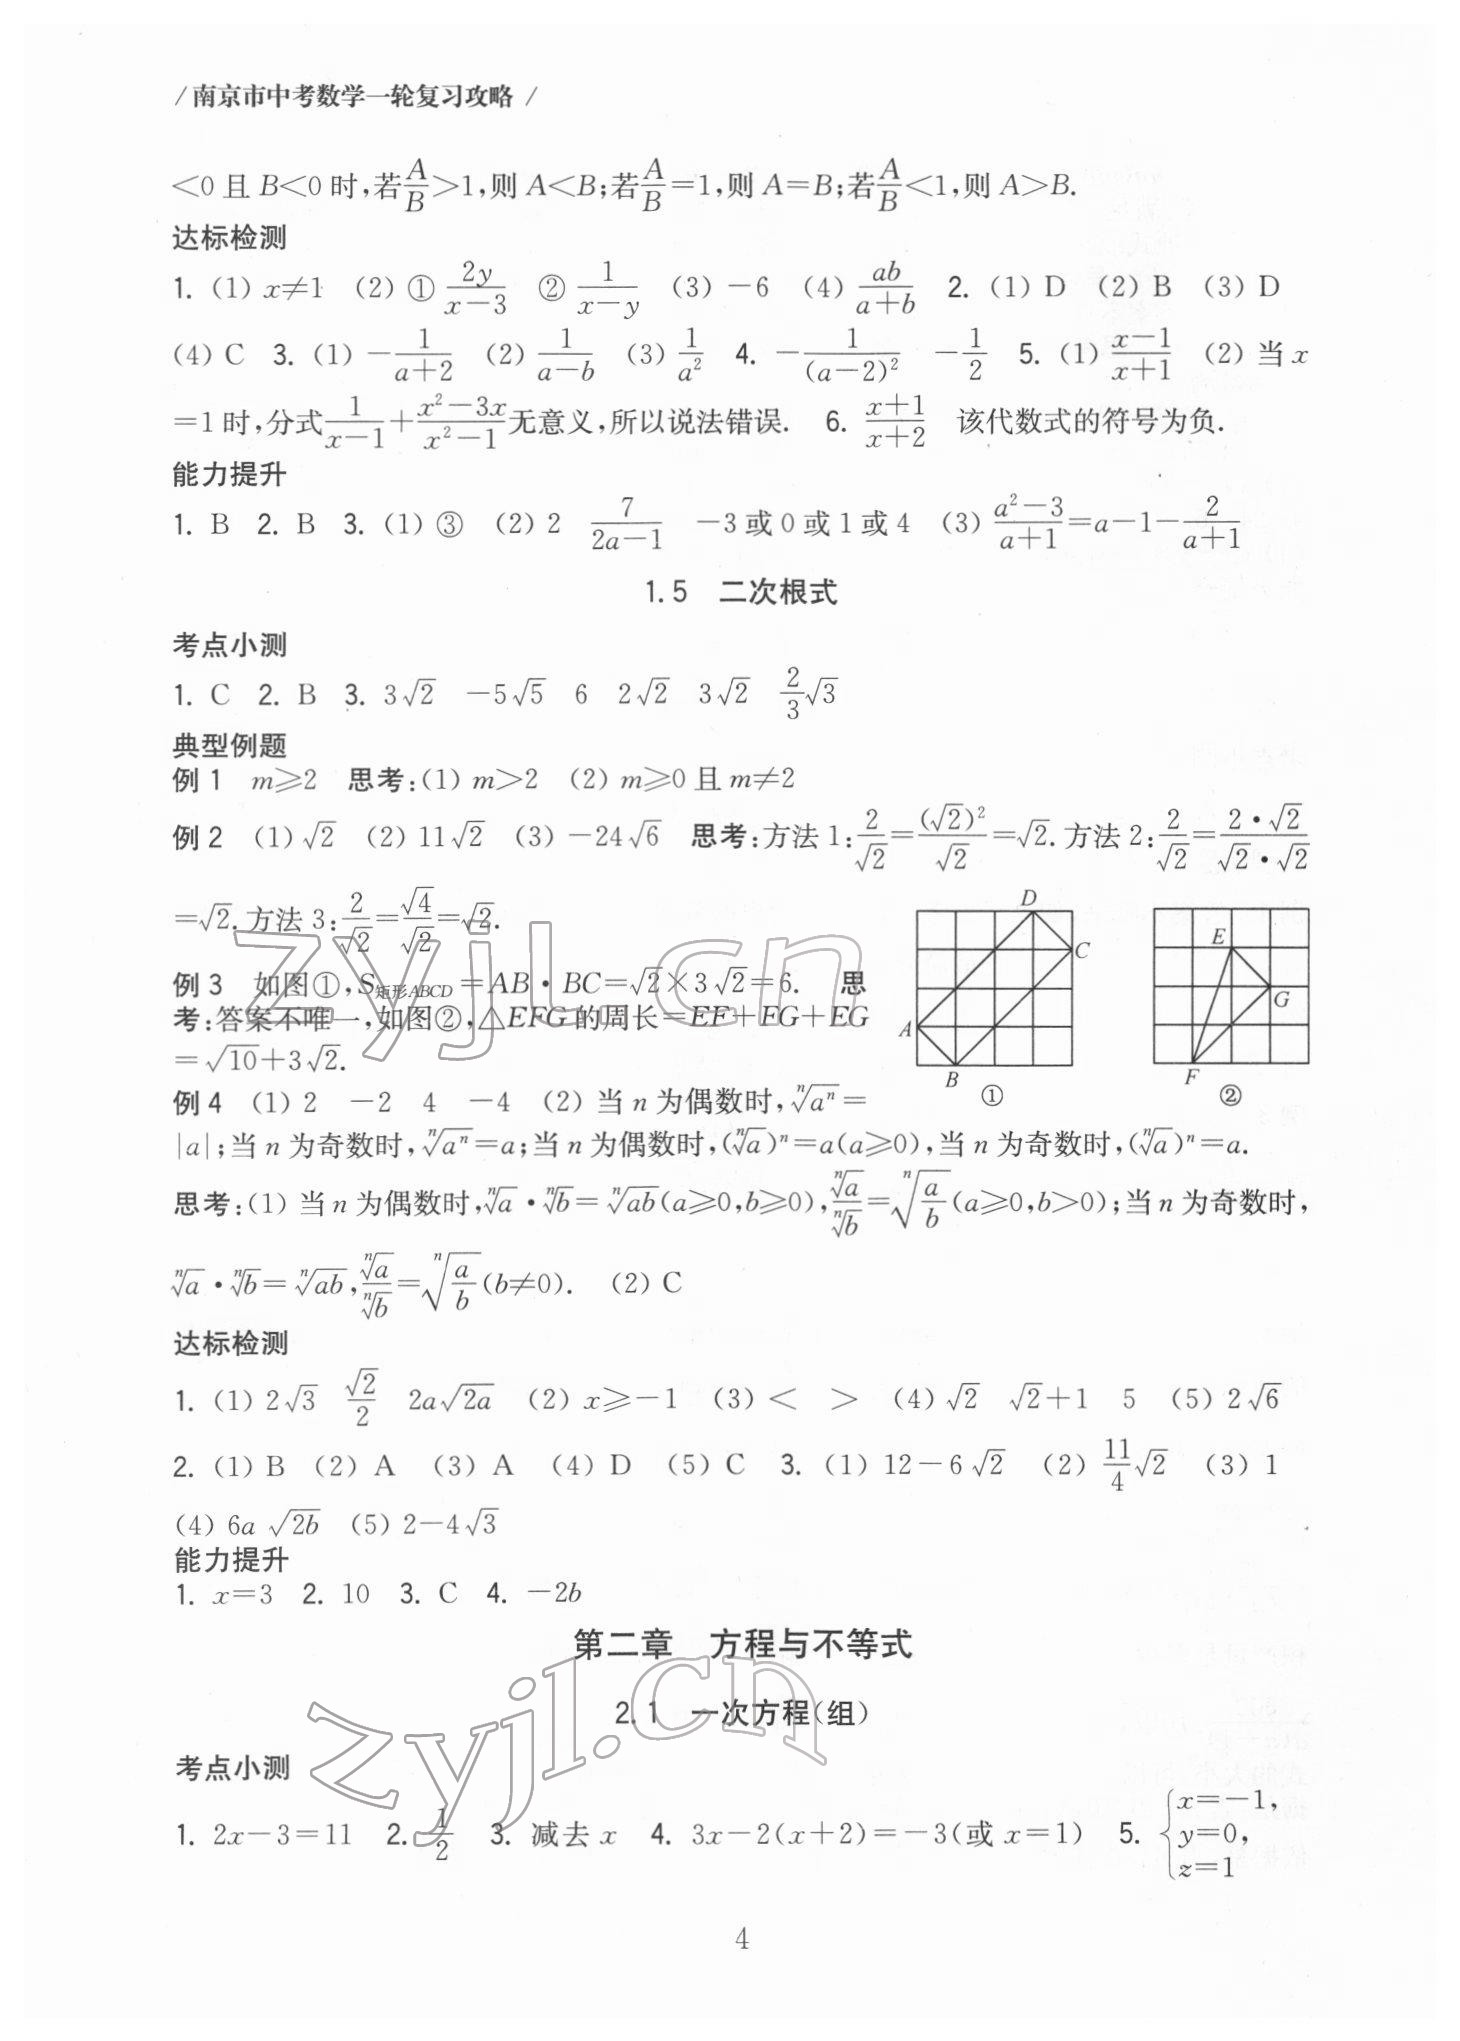 /南京市中考数学一轮复习攻略/
<0 且 B<0 时,若A/B>1,则 A<B;若A/B=1,则 A=B;若A/B<1,则 A>B.
达标检测
1. (1) x≠1 (2) ① 2y/(x-3) ② 1/(x-y) (3) -6 (4) ab/(a+b) 2. (1) D (2) B (3) D
(4) C 3. (1) -1/(a+2) (2) 1/(a-b) (3) 1/a² 4. -1/(a-2)² -1/2 5. (1) (x-1)/(x+1) (2) 当 x
=1 时,分式1/(x-1)+(x²-3x)/(x²-1)无意义,所以说法错误. 6. (x+1)/(x+2) 该代数式的符号为负.
能力提升
1. B 2. B 3. (1) ③ (2) 2 7/(2a-1) -3 或 0 或 1 或 4 (3) (a²-3)/(a+1)=a-1-2/(a+1)
1.5 二次根式
考点小测
1. C 2. B 3. 3√2 -5√5 6 2√2 3√2 2/3√3
典型例题
例 1 m≥2 思考:(1) m>2 (2) m≥0 且 m≠2
例 2 (1) √2 (2) 11√2 (3) -24√6 思考:方法 1:2/√2=(√2)²/√2=√2. 方法 2:2/√2=(2·√2)/(√2·√2)
=√2. 方法 3:2/√2=√4/√2=√2.
例 3 如图①,S矩形ABCD=AB·BC=√2×3√2=6. 思
考:答案不唯一,如图②,△EFG 的周长=EF+FG+EG
=√10+3√2.
D
C
A
B
①
E
G
F
②
例 4 (1) 2 -2 4 -4 (2) 当 n 为偶数时,ⁿ√aⁿ=
|a|;当 n 为奇数时,ⁿ√aⁿ=a;当 n 为偶数时,(ⁿ√a)ⁿ=a(a≥0),当 n 为奇数时,(ⁿ√a)ⁿ=a.
思考:(1) 当 n 为偶数时,ⁿ√a·ⁿ√b=ⁿ√ab(a≥0,b≥0),ⁿ√a/ⁿ√b=ⁿ√(a/b)(a≥0,b>0);当 n 为奇数时,
ⁿ√a·ⁿ√b=ⁿ√ab,ⁿ√a/ⁿ√b=ⁿ√(a/b)(b≠0). (2) C
达标检测
1. (1) 2√3 √2/2 2a√2a (2) x≥-1 (3) < > (4) √2 √2+1 5 (5) 2√6
2. (1) B (2) A (3) A (4) D (5) C 3. (1) 12-6√2 (2) 11/4√2 (3) 1
(4) 6a√2b (5) 2-4√3
能力提升
1. x=3 2. 10 3. C 4. -2b
第二章 方程与不等式
2.1 一次方程(组)
考点小测
1. 2x-3=11 2. 1/2 3. 减去 x 4. 3x-2(x+2)=-3(或 x=1) 5. {x=-1,
y=0,
z=1
4
zyjl.cn
zyjl.cn